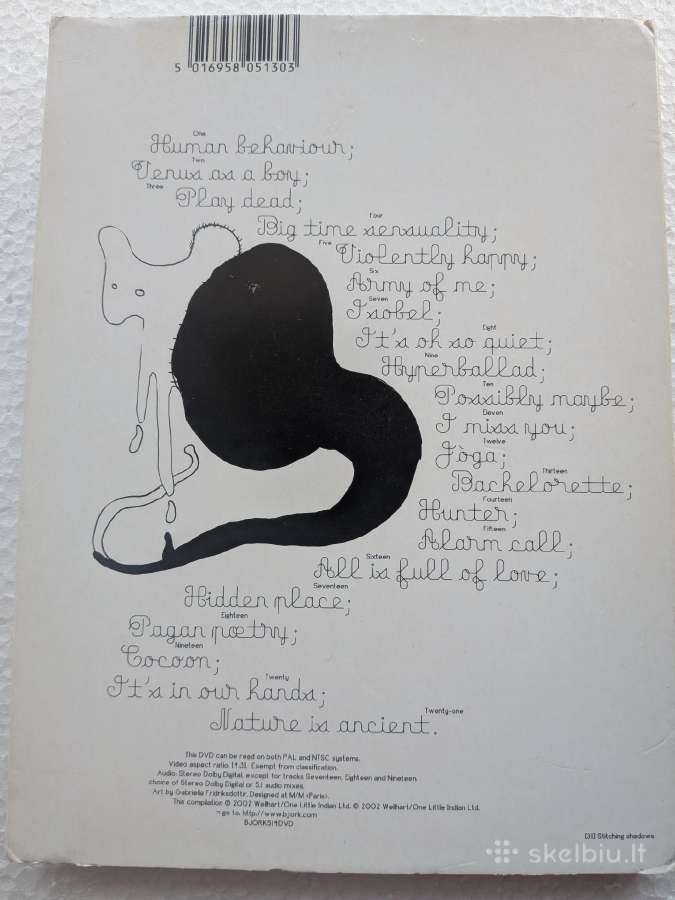 5 016958 051303
One
Human behaviour;
Two
Venus as a boy;
Three
Play dead;
Four
Big time sensuality;
Five
Violently happy;
Six
Army of me;
Seven
Isobel;
Eight
It's oh so quiet;
Nine
Hyperballad;
Ten
Possibly maybe;
Eleven
I miss you;
Twelve
Jòga;
Thirteen
Bachelorette;
Fourteen
Hunter;
Fifteen
Alarm call;
Sixteen
All is full of love;
Seventeen
Hidden place;
Eighteen
Pagan pœtry;
Nineteen
Cocoon;
Twenty
It's in our hands;
Twenty-one
Nature is ancient.
This DVD can be read on both PAL and NTSC systems.
Video aspect ratio [4:3]. Exempt from classification.
Audio: Stereo Dolby Digital, except for tracks Seventeen, Eighteen and Nineteen,
choice of Stereo Dolby Digital or 5.1 audio mixes.
Art by Gabriela Fridriksdottir. Designed at M/M <Paris>.
This compilation © 2002 Wellhart/One Little Indian Ltd. © 2002 Wellhart/One Little Indian Ltd.
go to: http://www.bjork.com
BJORK514DVD
[31] Stitching shadows
skelbiu.lt